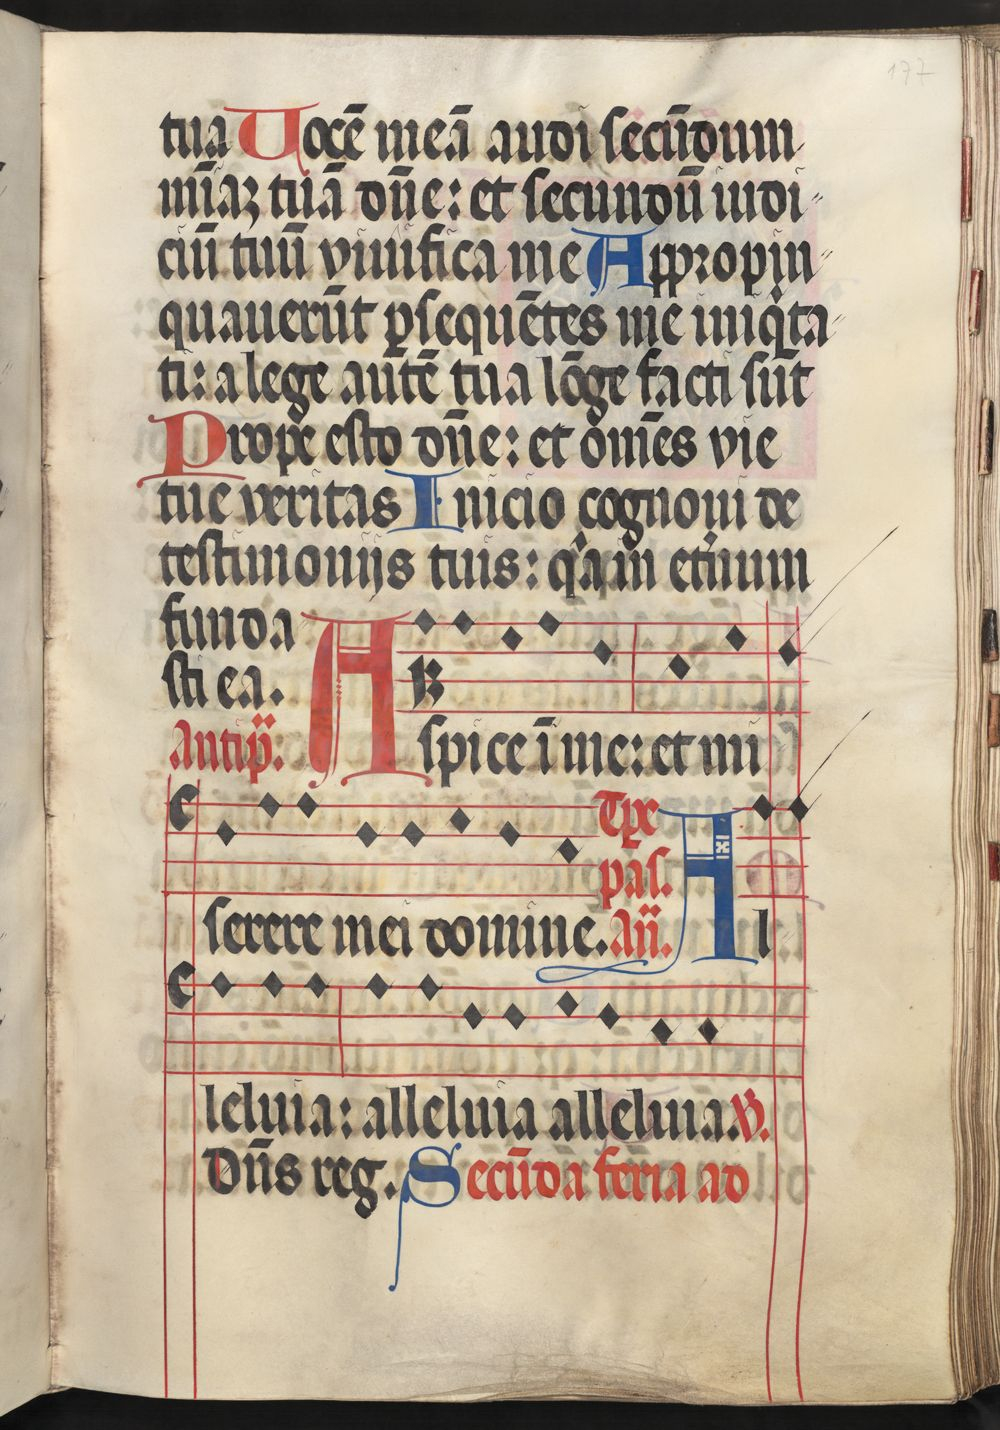 177
tua Uocē meā audi secūdum
mīaʒ tuā dn̄e: et secundū iudi-
ciū tuū viuifica me Appropin-
quauerūt ꝑsequētes me iniqͥta-
ti: a lege autē tua lōge facti sūt
Prope esto dn̄e: et om̄es vie
tue veritas Inicio cognoui de
testimonijs tuis: qͥa in etͥnum
funda
sti ea.
Antip̄. Aspice ī me: et mi
Tꝑe
pas.
serere mei domine. An̄. Al
leluia: alleluia alleluia. ꝟ.
Dn̄s reg. Secūda feria ad